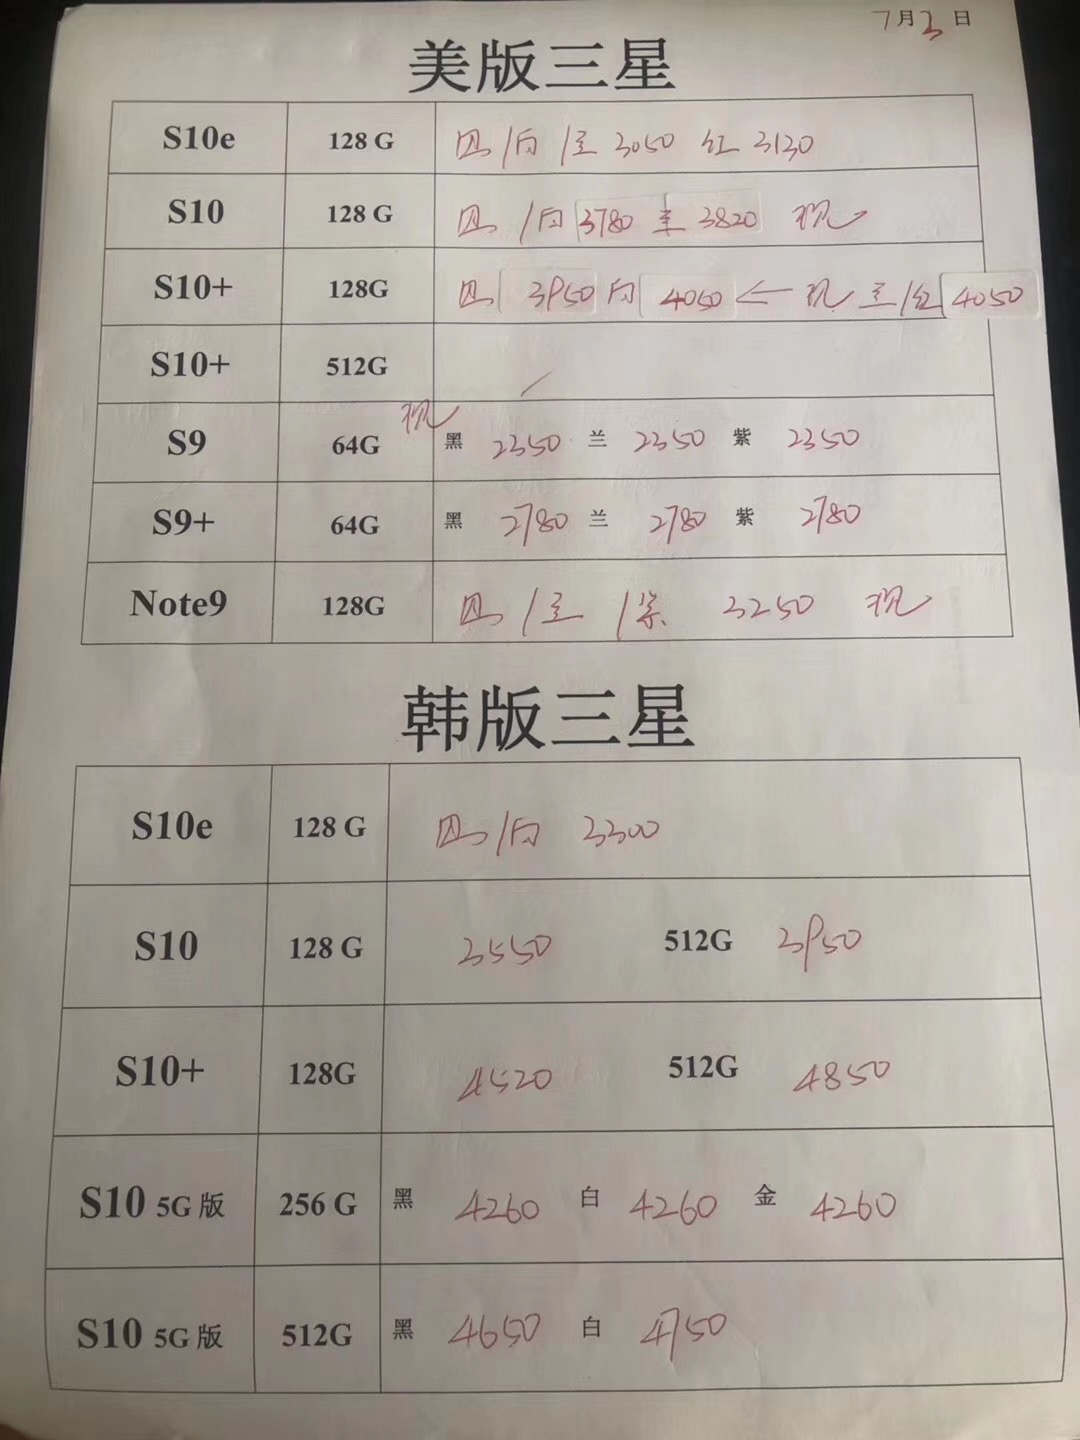 7月3日
美版三星
S10e 128 G 黑/白/兰 3050 红 3130
S10 128 G 黑/白 3780 兰 3820 现
S10+ 128G 黑 3950 白 4050 ← 现 兰/红 4050
S10+ 512G
S9 64G 现 黑 2350 兰 2350 紫 2350
S9+ 64G 黑 2780 兰 2780 紫 2780
Note9 128G 黑/兰/紫 3250 现
韩版三星
S10e 128 G 黑/白 3300
S10 128 G 3550 512G 3950
S10+ 128G 4520 512G 4850
S10 5G版 256 G 黑 4260 白 4260 金 4260
S10 5G版 512G 黑 4650 白 4750